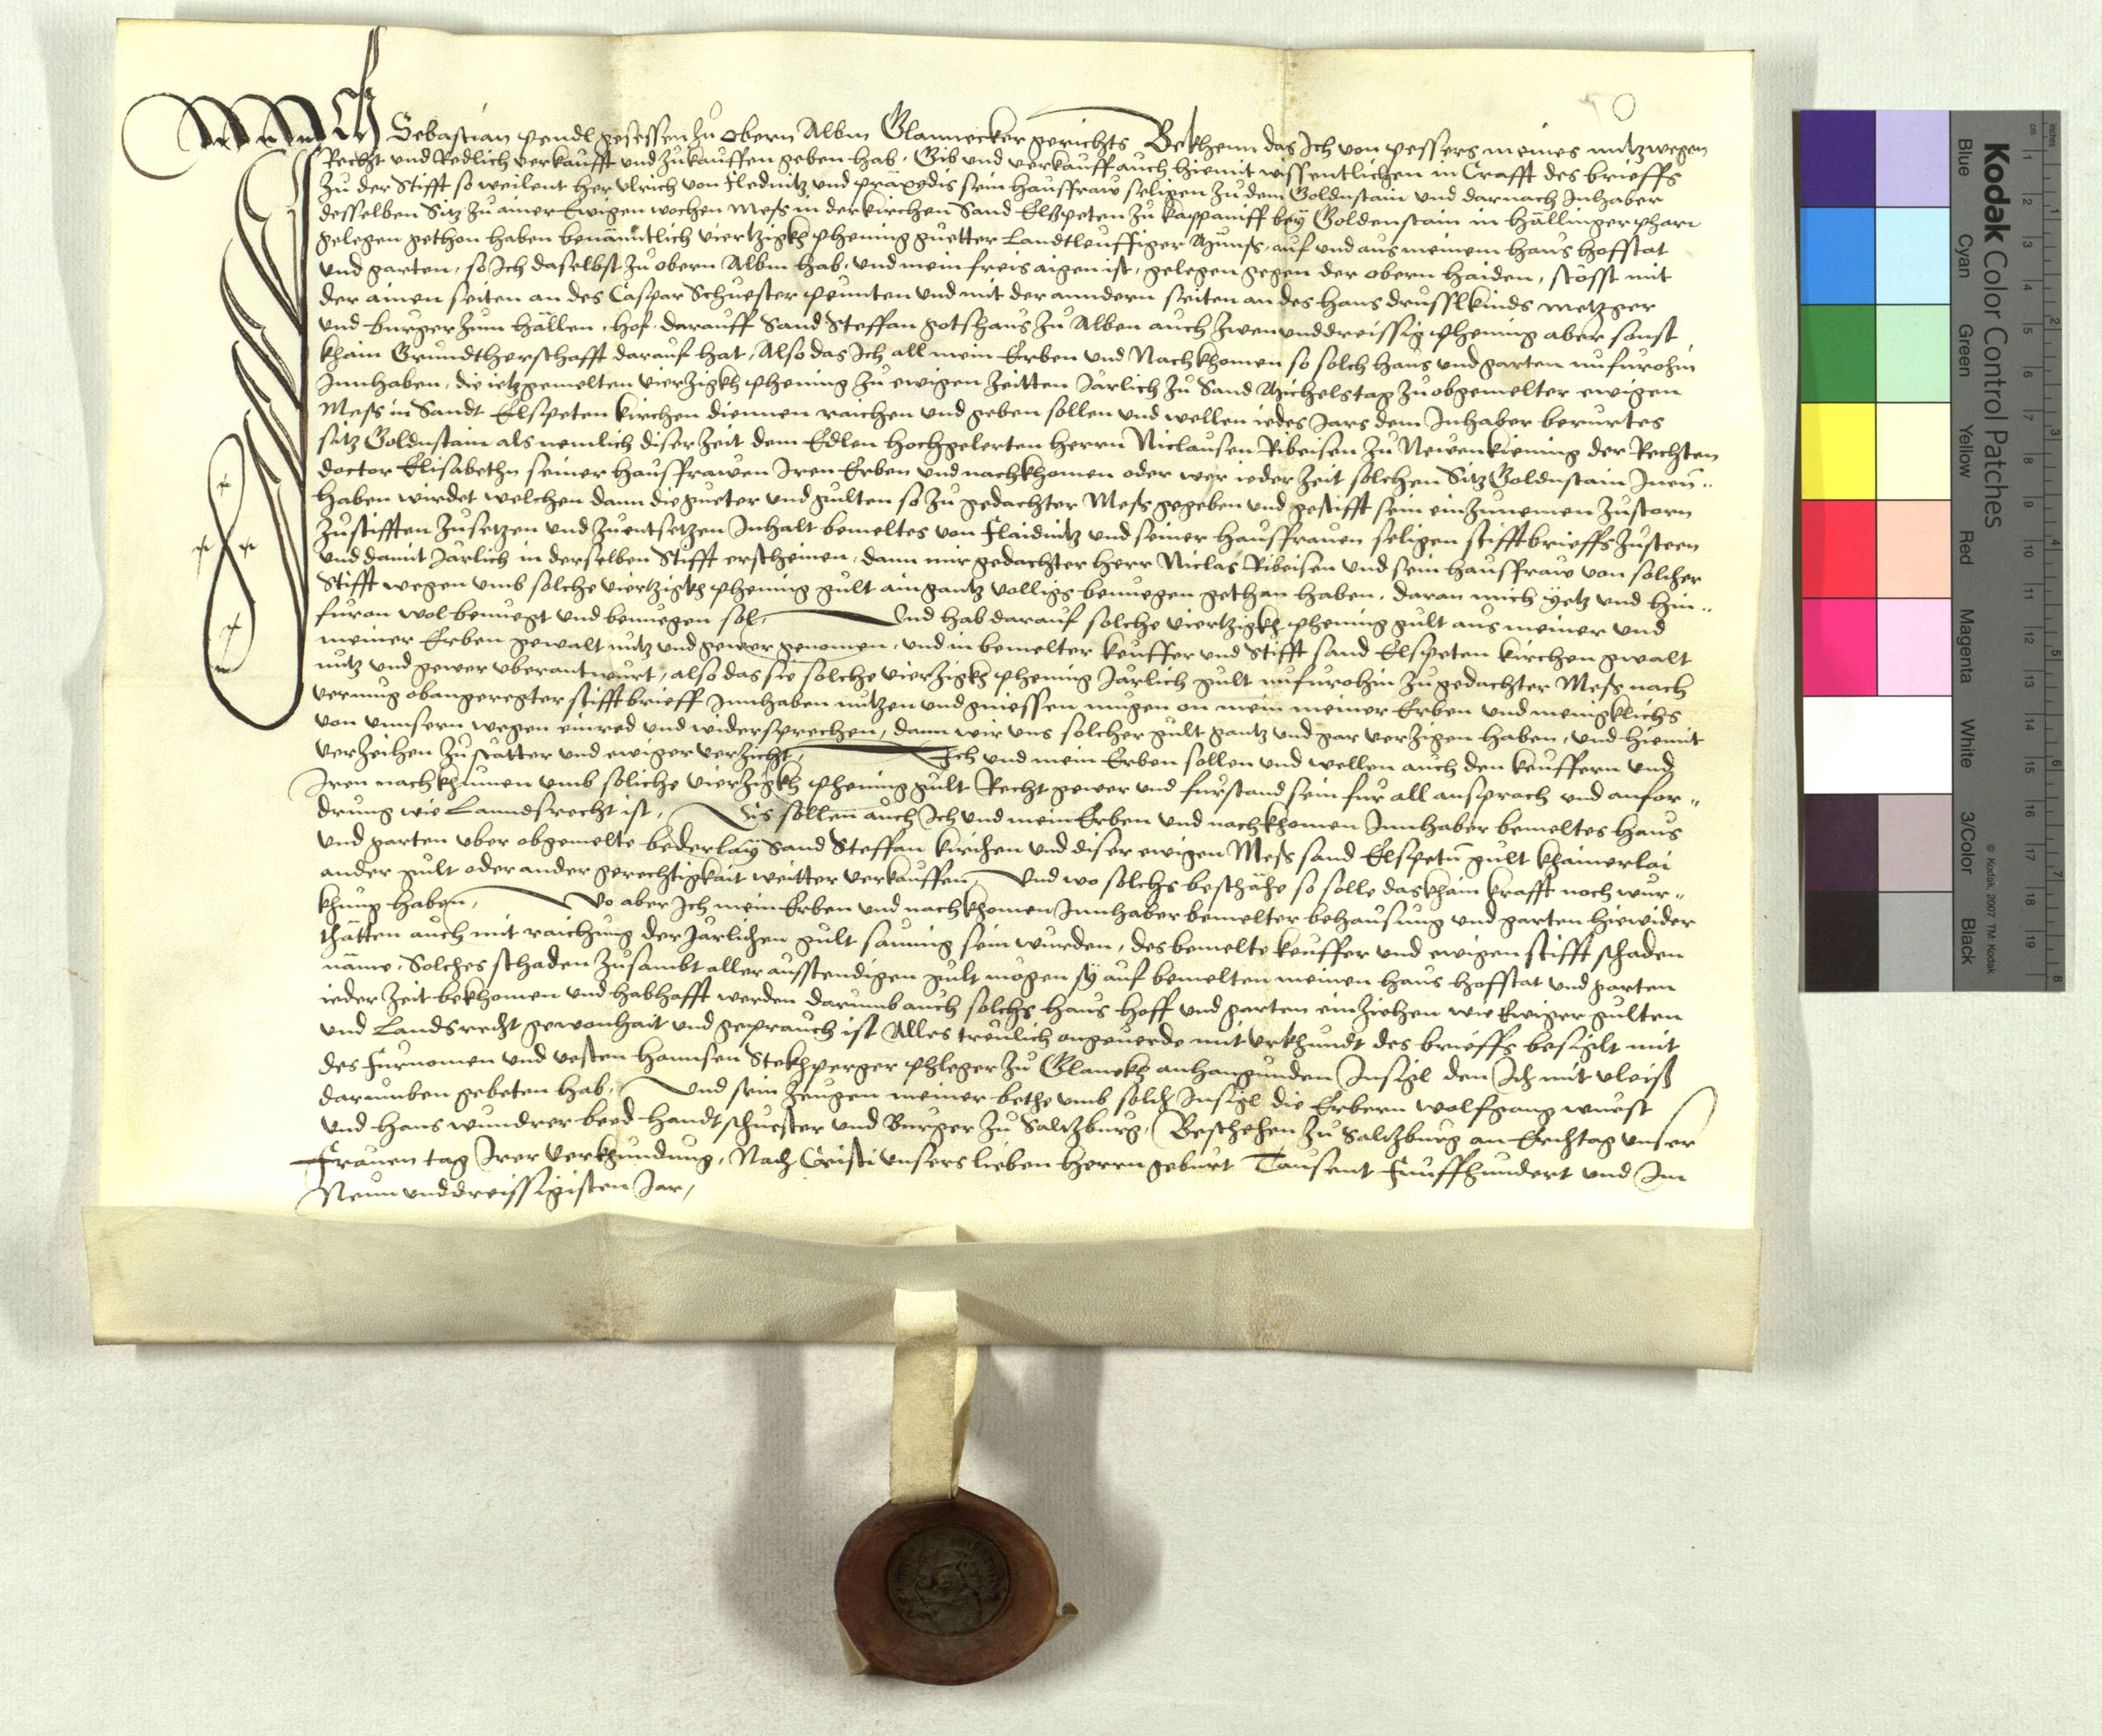 Ich Sebastian Pendl gesessen zu Obern Albm Glannecker gerichts Bekhenn das Ich von pessers meines nutz wegen
Recht und Redlich verkaufft und zukauffen geben hab, Gib und verkauff auch hiemit wissentlichen in Crafft des brieffs
zu der Stifft so weilent her Ulrich von Flednitz und praxedis sein hausfraw seligen zu dem Goldnstain und darnach Inhaber
desselben Sitz zu ainer Ewigen wochen Mess in der kirchen Sand Elspeten zu kappaniff bey Goldenstain in hällinger pharr
gelegen gethon haben benänntlich viertzigkh phening guetter Landtleuffiger Munss, auf und aus meinem haus hofstat
und garten, so Ich daselbst zu obern Albm hab, und mein freis aigen ist, gelegen gegen der obern haiden, stosst mit
der ainen seiten an des Caspar Schuester peunten und mit der anndern seiten an des hans drusslkinds metzger
und burger zum hällen, hof, darauff Sand Steffan gotshaus zu Alben auch zwenunddreissig phening aber sonst
khain Grundtherschafft darauf hat, Also das Ich all mein Erben und Nachkhomen so solch haus und garten nufurohin
Innhaben, die ietzgemelten vierzigkh phening zu ewigen zeitten Järlich zu Sand Michelstag zu obgemelter ewigen
Mess in Sandt Elspeten kirchen diennen raichen und geben sollen und wellen iedes Jars dem Inhaber berurtes
sitz Goldnstain als nemlich diser zeit dem Edlen hochgelerten herrn Niclausen Ribeisen zu Newenkieming der Rechten
doctor Elisabethn seiner hausfrawen Iren Erben und nachkhomen oder wer ieder zeit solchen Sitz Goldnstain Inen„
haben wirdet welchen dann die gueter und gulten so zu gedachter Mess gegeben und gestifft sein einzunemen zustorn
zustifften zusetzen und zuentsetzen Inhalt bemeltes von Flaidnitz und seiner hausfrauen seligen stifftbrieffs zusteen
und damit Järlich in derselben Stifft erscheinen, dann mir gedachter herr Niclas Ribeisen und sein hausfraw von solcher
Stifft wegen umb solche viertzigkh phening gult ain gantz volligs benuegen gethan haben, daran mich yetz und hin„
furan wol benuegt und benuegen sol, Und hab darauf solche viertzigkh phening gult aus meiner und
meiner Erben gewalt nutz und gewer genomen, und in bemelter keuffer und Stifft sand Elspeten kirchen gwalt
nutz und gewer uberantwurt, also das sie solche vierzigkh phening Järlich gult nufurohin zu gedachter Mess nach
vermug obangeregter stifftbrieff Innhaben nutzen und gniessen mugen on mein meiner Erben und menigklichs
von unnsern wegen einred und widersprechen, dann wir uns solcher gult gantz und gar verzigen haben, und hiemit
verzeihen zu statter und ewiger verzicht, Ich und mein Erben sollen und wellen auch den keuffern und
Iren nachkhumen umb soliche vierzigkh phening gult Recht gewer und furstand sein fur all ansprach und anfor„
drung wie Lanndsrecht ist, Eis sollen auch Ich und mein Erben und nachkhomen Innhaber bemeltes haus
und garten uber obgemelte bederlay Sand Steffan kirchen und diser ewigen Mess sand Elspetn gult khainerlai
ander gult oder ander gerechtigkait weitter verkauffen, Und wo solchs beschähe so solle das khain krafft noch wur„
khung haben, Wo aber Ich mein Erben und nachkhomen Innhaber bemelter behausung und garten hiewider
thätten auch mit raichung der Järlichen gult saumig sein wurden, des bemelte keuffer und ewigen stifft schaden
näme, Solches schaden zusambt aller ausstendigen gult mogen sy auf bemelten meinen haus hofstat und garten
ieder zeit bekhomen und habhafft werden darumb auch solchs haus hoff und garten einziehen wie Ewiger gulten
und Landsrecht gewonhait und geprauch ist Alles treulich ongeuerde mit urkhundt des brieffs besiglt mit
des Furnomen und vesten hannsen Stekhperger phleger zu Glanekh anhangunden Insigl den Ich mit vleiß
darumben gebeten hab, Und sein Zeugen meiner bethe umb solch Insigl die Erbern wolfgang wuest
und hans wundrer bed handtschuester und Burger zu Saltzburg, Beschehen zu Saltzburg an Erchtag unser
Frauen tag Irer verkhundung, Nach Cristi unsers lieben herrn geburt Tausent Funffhundert und Im
Neununddreissigisten Jar,
Kodak Color Control Patches
Blue Cyan Green Yellow Red Magenta White 3/Color Black
© Kodak, 2007 TM: Kodak
cm 1 2 3 4 5 6 7 8 9 10 11 12 13 14 15 16 17 18 19
inches 1 2 3 4 5 6 7 8